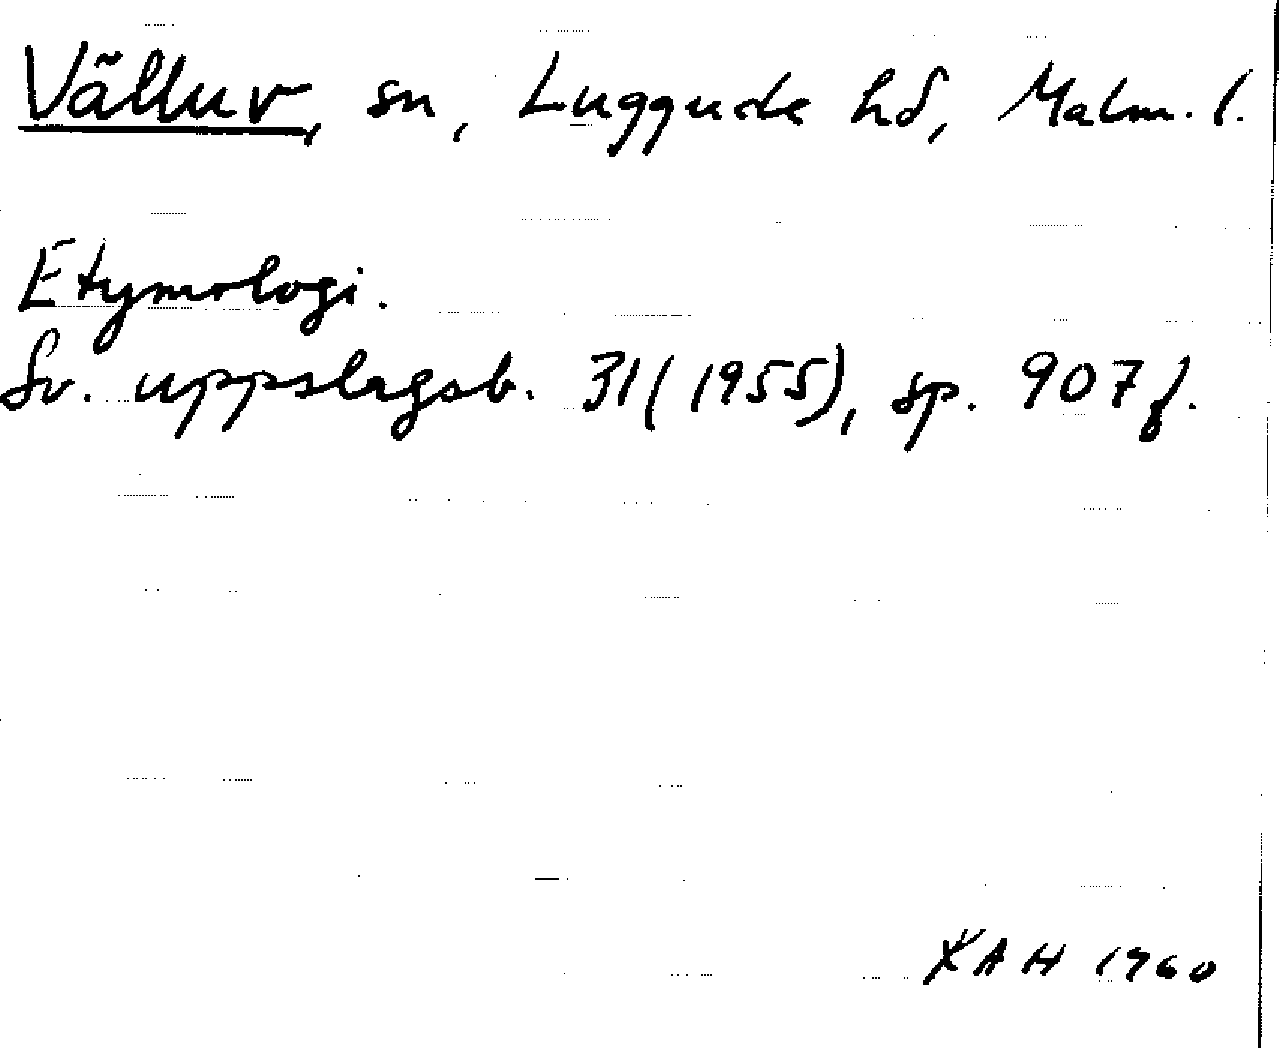 Välluv, sn, Luggude hd, Malm. l.
Etymologi.
Sv. uppslagsb. 31 (1955), sp. 907 f.
KAH 1960